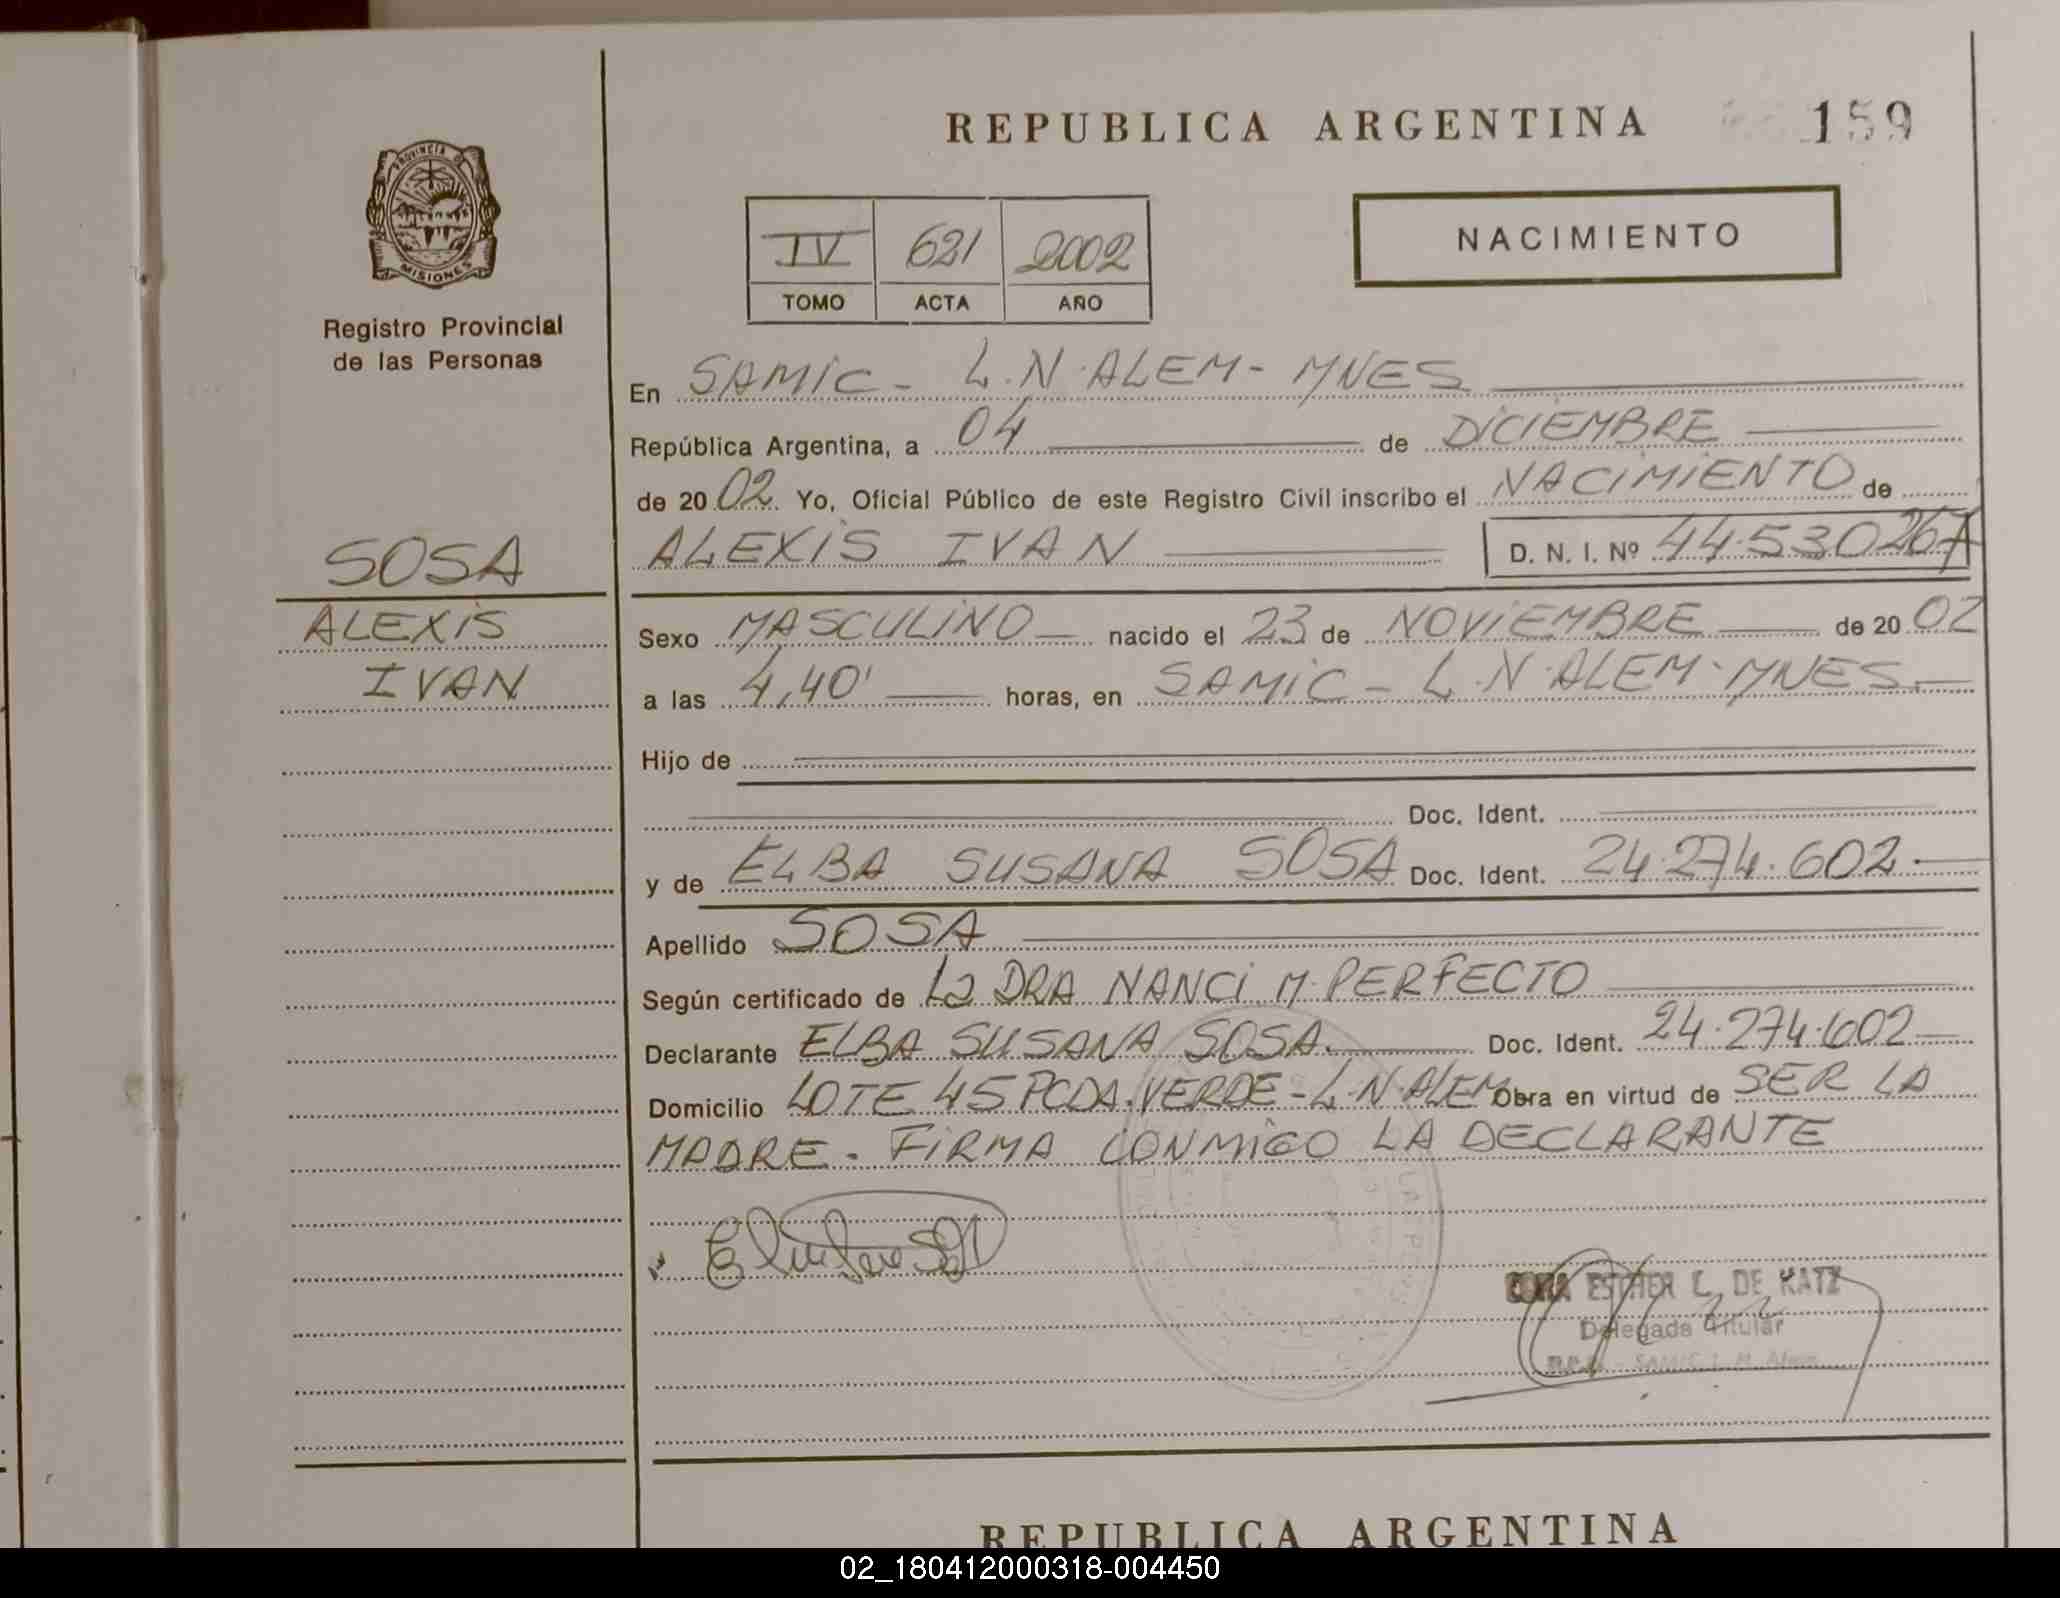 REPUBLICA ARGENTINA
159
PROVINCIA D
MISIONES
Registro Provincial
de las Personas
IV 621 2002
TOMO ACTA AÑO
NACIMIENTO
En SAMIC - L.N. ALEM - MNES
República Argentina, a 04 de DICIEMBRE
de 20 02 Yo, Oficial Público de este Registro Civil inscribo el NACIMIENTO de
ALEXIS IVAN D. N. I. Nº 44.530.267
SOSA
ALEXIS
IVAN
Sexo MASCULINO nacido el 23 de NOVIEMBRE de 20 02
a las 4,40' horas, en SAMIC - L.N. ALEM - MNES.
Hijo de
Doc. Ident.
y de ELBA SUSANA SOSA Doc. Ident. 24.274.602.
Apellido SOSA
Según certificado de La DRA NANCI M. PERFECTO
Declarante ELBA SUSANA SOSA. Doc. Ident. 24.274.602
Domicilio LOTE 45 PCDA. VERDE - L.N. ALEM Obra en virtud de SER LA
MADRE. FIRMA CONMIGO LA DECLARANTE
ESTHER L. DE KATZ
Delegada Titular
SAMIC L. N. Alem
REPUBLICA ARGENTINA
02_180412000318-004450